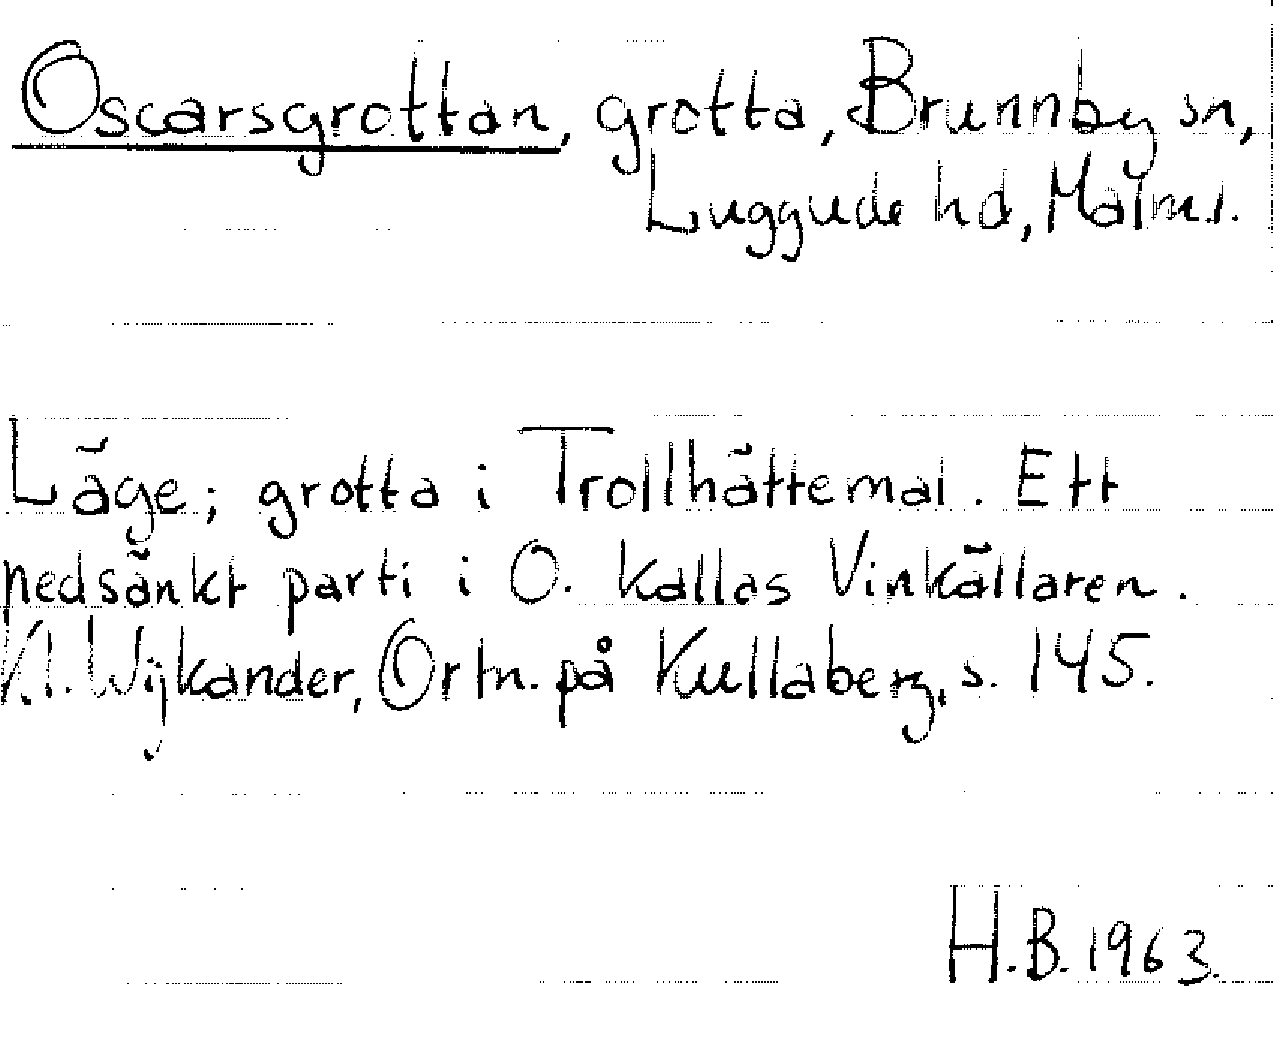 Oscarsgrottan, grotta, Brunnby sn,
Luggude hd, Malm.l.
Läge; grotta i Trollhättemal. Ett
nedsänkt parti i O. kallas Vinkällaren.
Kl. Wijkander, Ortn. på Kullaberg, s. 145.
H.B. 1963.